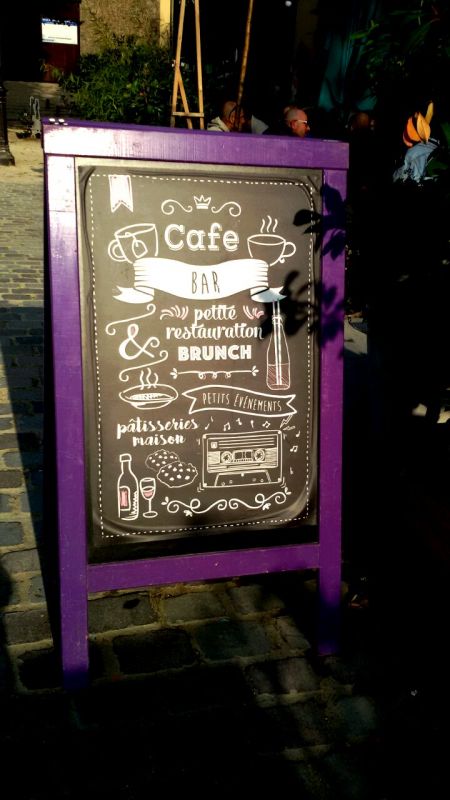 Cafe
BAR
petite
restauration
& BRUNCH
PETITS ÉVÉNEMENTS
pâtisseries
maison